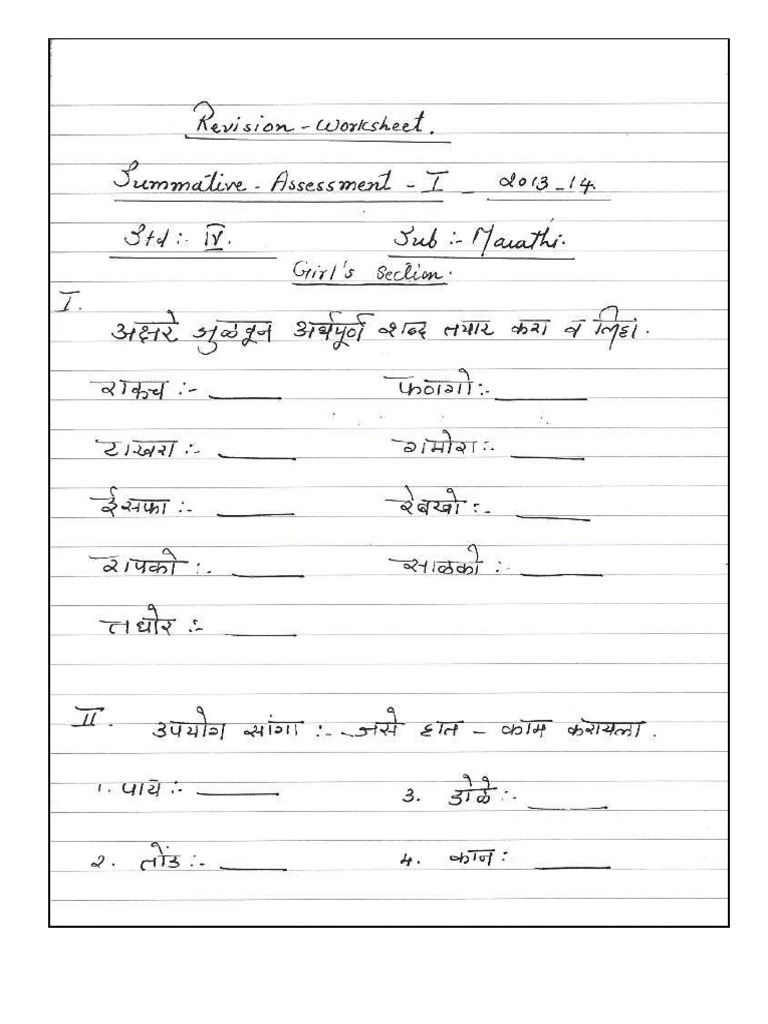 Revision - Worksheet.
Summative - Assessment - I - 2013-14.
Std :- IV. Sub :- Marathi.
Girl's Section.
I.
अक्षरे जुळवून अर्थपूर्ण शब्द तयार करा व लिहा.
राकच :- ____ फणागो :- ____
टाखरा :- ____ रामोरा :- ____
ईसफा :- ____ रेबखो :- ____
रापको :- ____ साळको :- ____
तधोर :- ____
II. उपयोग सांगा :- जसे हात - काम करायला.
१. पाय :- ____ ३. डोळे :- ____
२. तोंड :- ____ ४. कान : ____